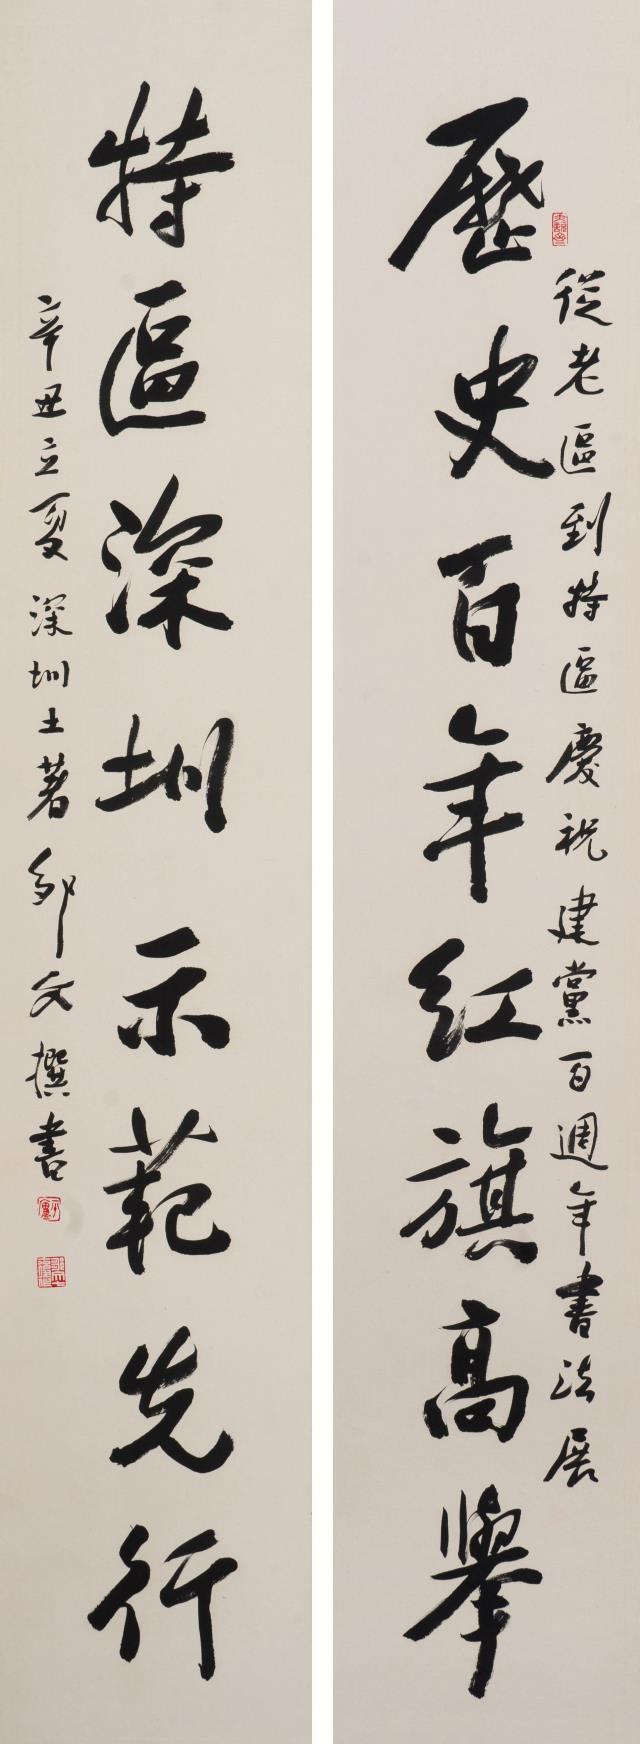 從老區到特區慶祝建黨百週年書法展
歷史百年红旗高舉
特區深圳示範先行
辛丑立夏深圳土著鄒文撰書